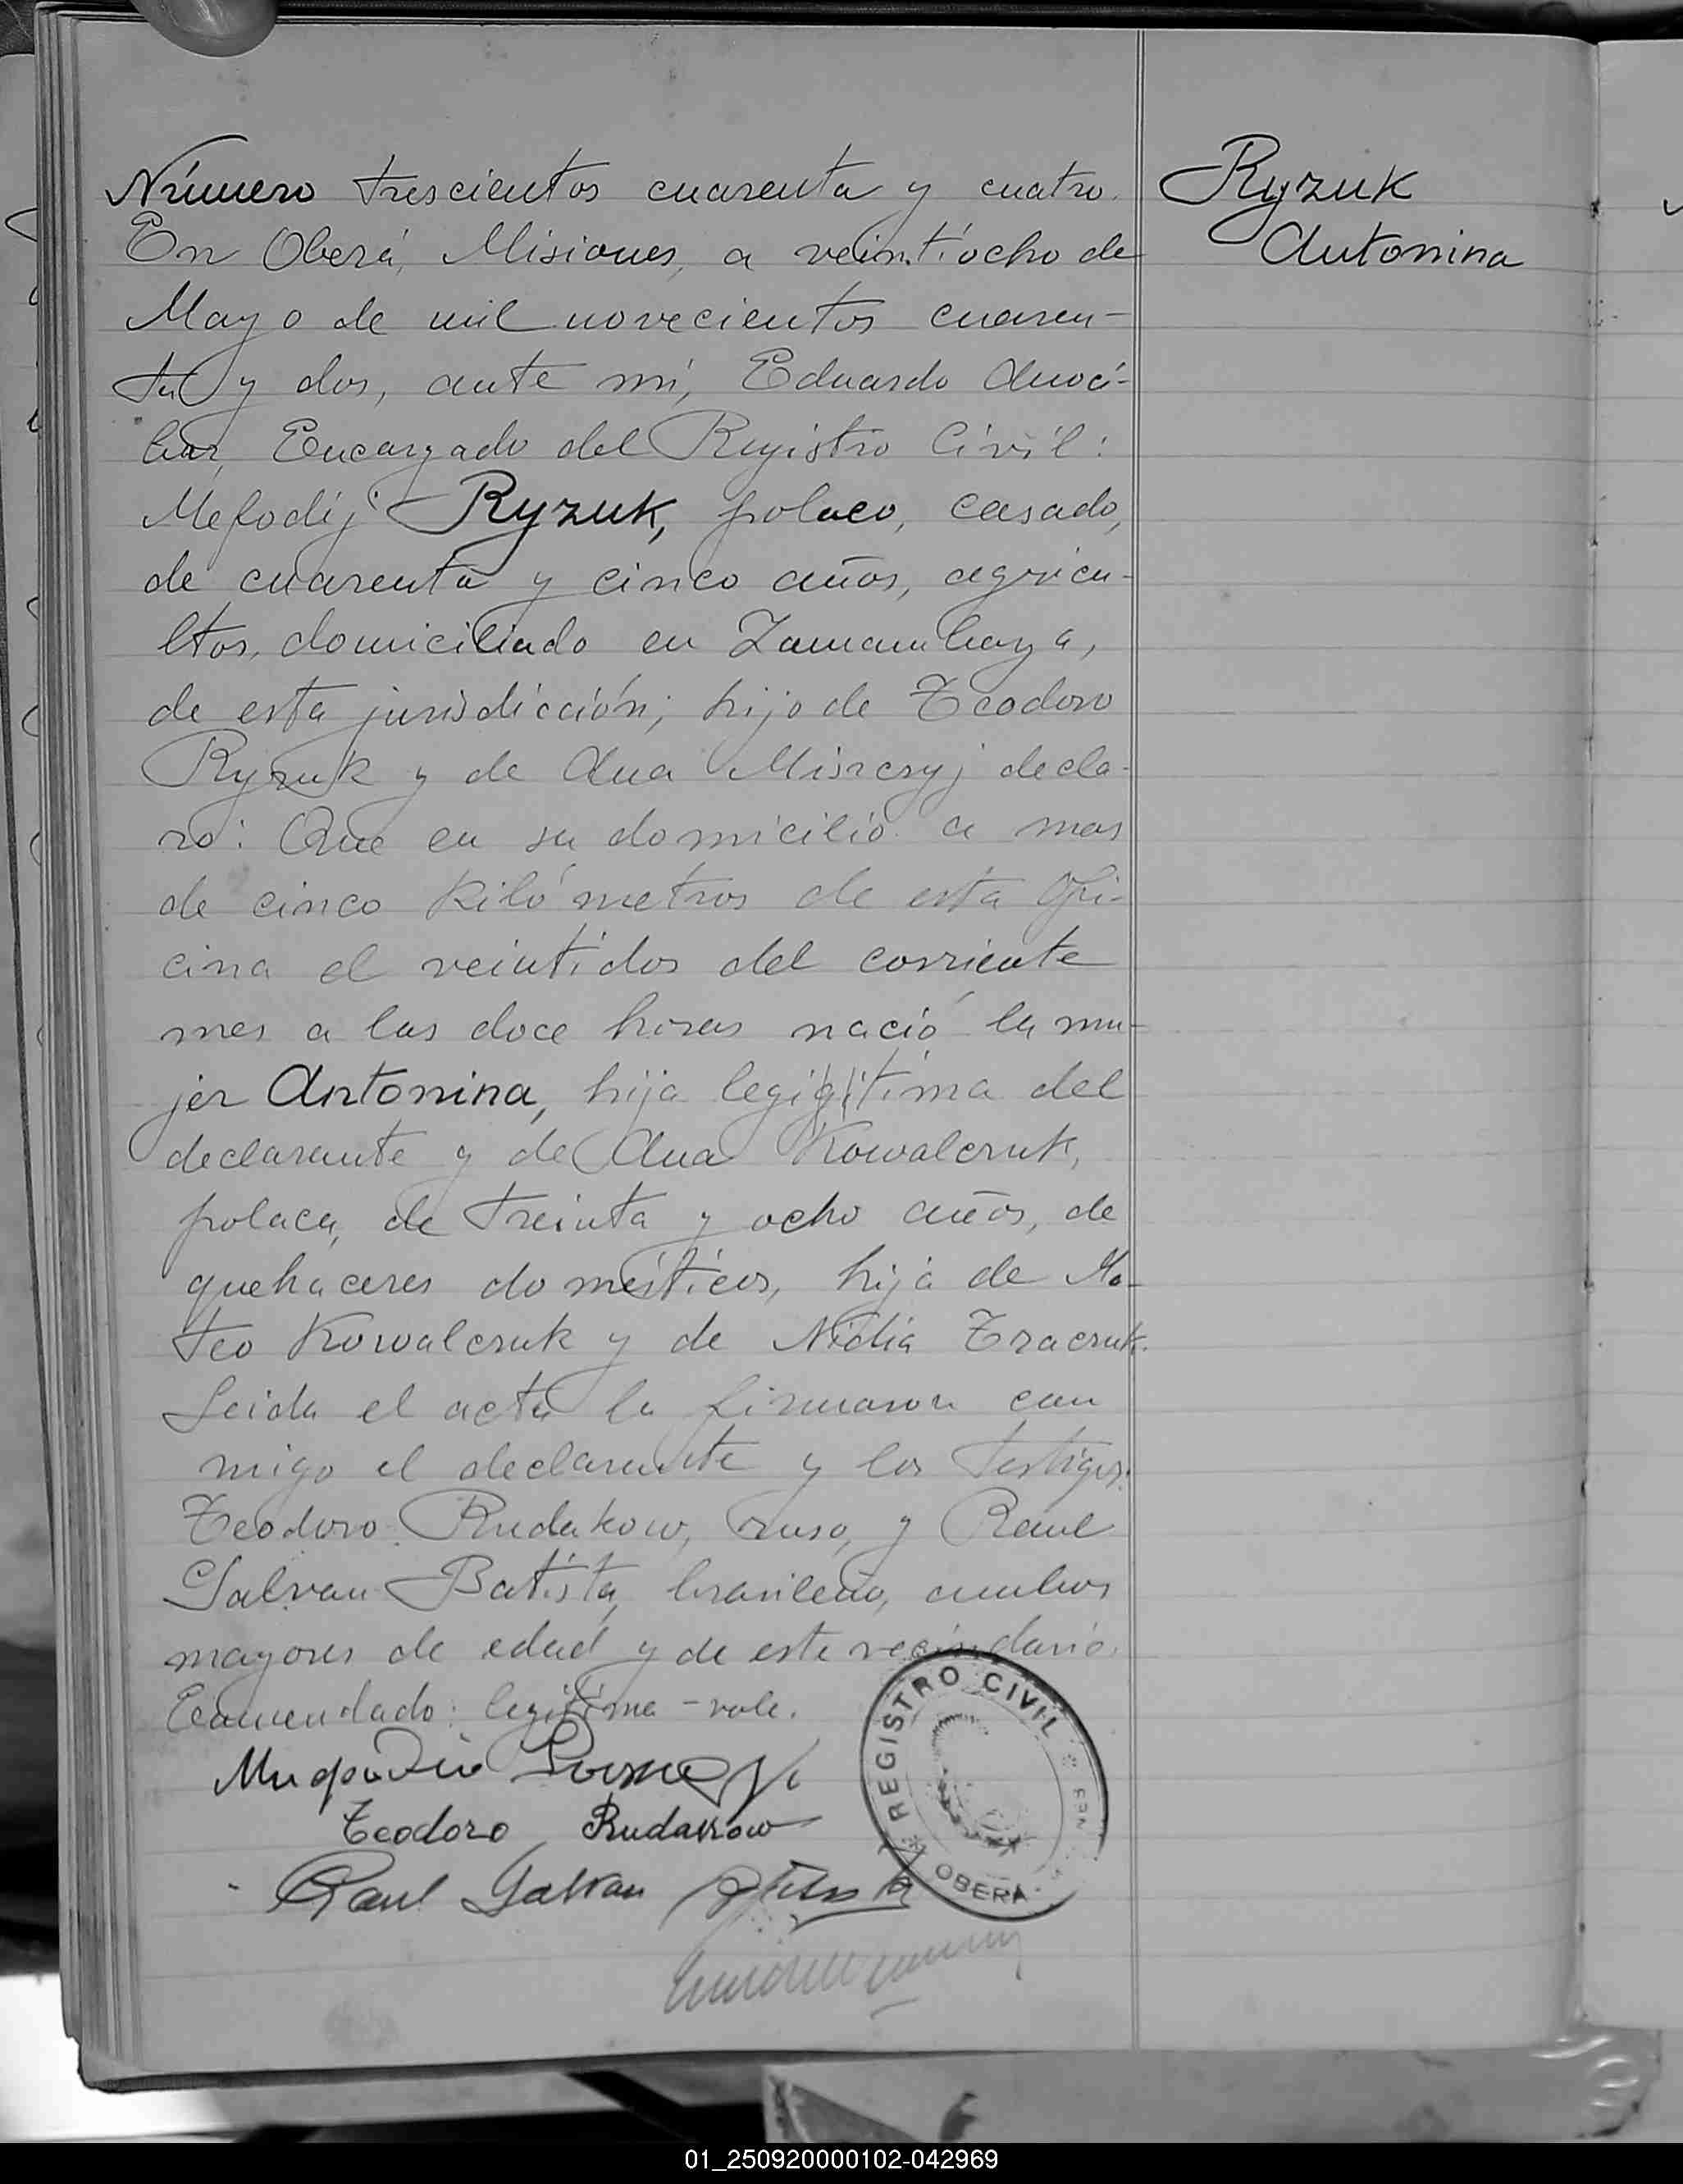 Número trescientos cuarenta y cuatro.
Ryzuk
En Oberá, Misiones, a veintiocho de
Antonina
Mayo de mil novecientos cuaren-
ta y dos, ante mí, Eduardo
Encargado del Registro Civil:
Mefodij Ryzuk, polaco, casado,
de cuarenta y cinco años, agricu-
ltor, domiciliado en
de esta jurisdicción; hijo de Teodoro
Ryzuk y de Ana Misreryj decla-
ro: Que en su domicilio a mas
de cinco kilómetros de esta Ofi-
cina el veintidos del corriente
mes a las doce horas nació la mu-
jer Antonina, hija legigitima del
declarante y de Ana Kowalcruk,
polaca, de treinta y ocho años, de
quehaceres domésticos, hija de Ma-
teo Kowalcruk y de Nidia Tracruk.
Leida el acta la firmaron con
migo el declarante y los testigos:
Teodoro Rudakow, ruso, y Raul
Galvan Batista, brasileño, ambos
mayores de edad y de este vecindario.
Enmendado: legitima - vale.
Teodoro Rudakow
Raul Galvan
REGISTRO CIVIL
OBERA
01_250920000102-042969